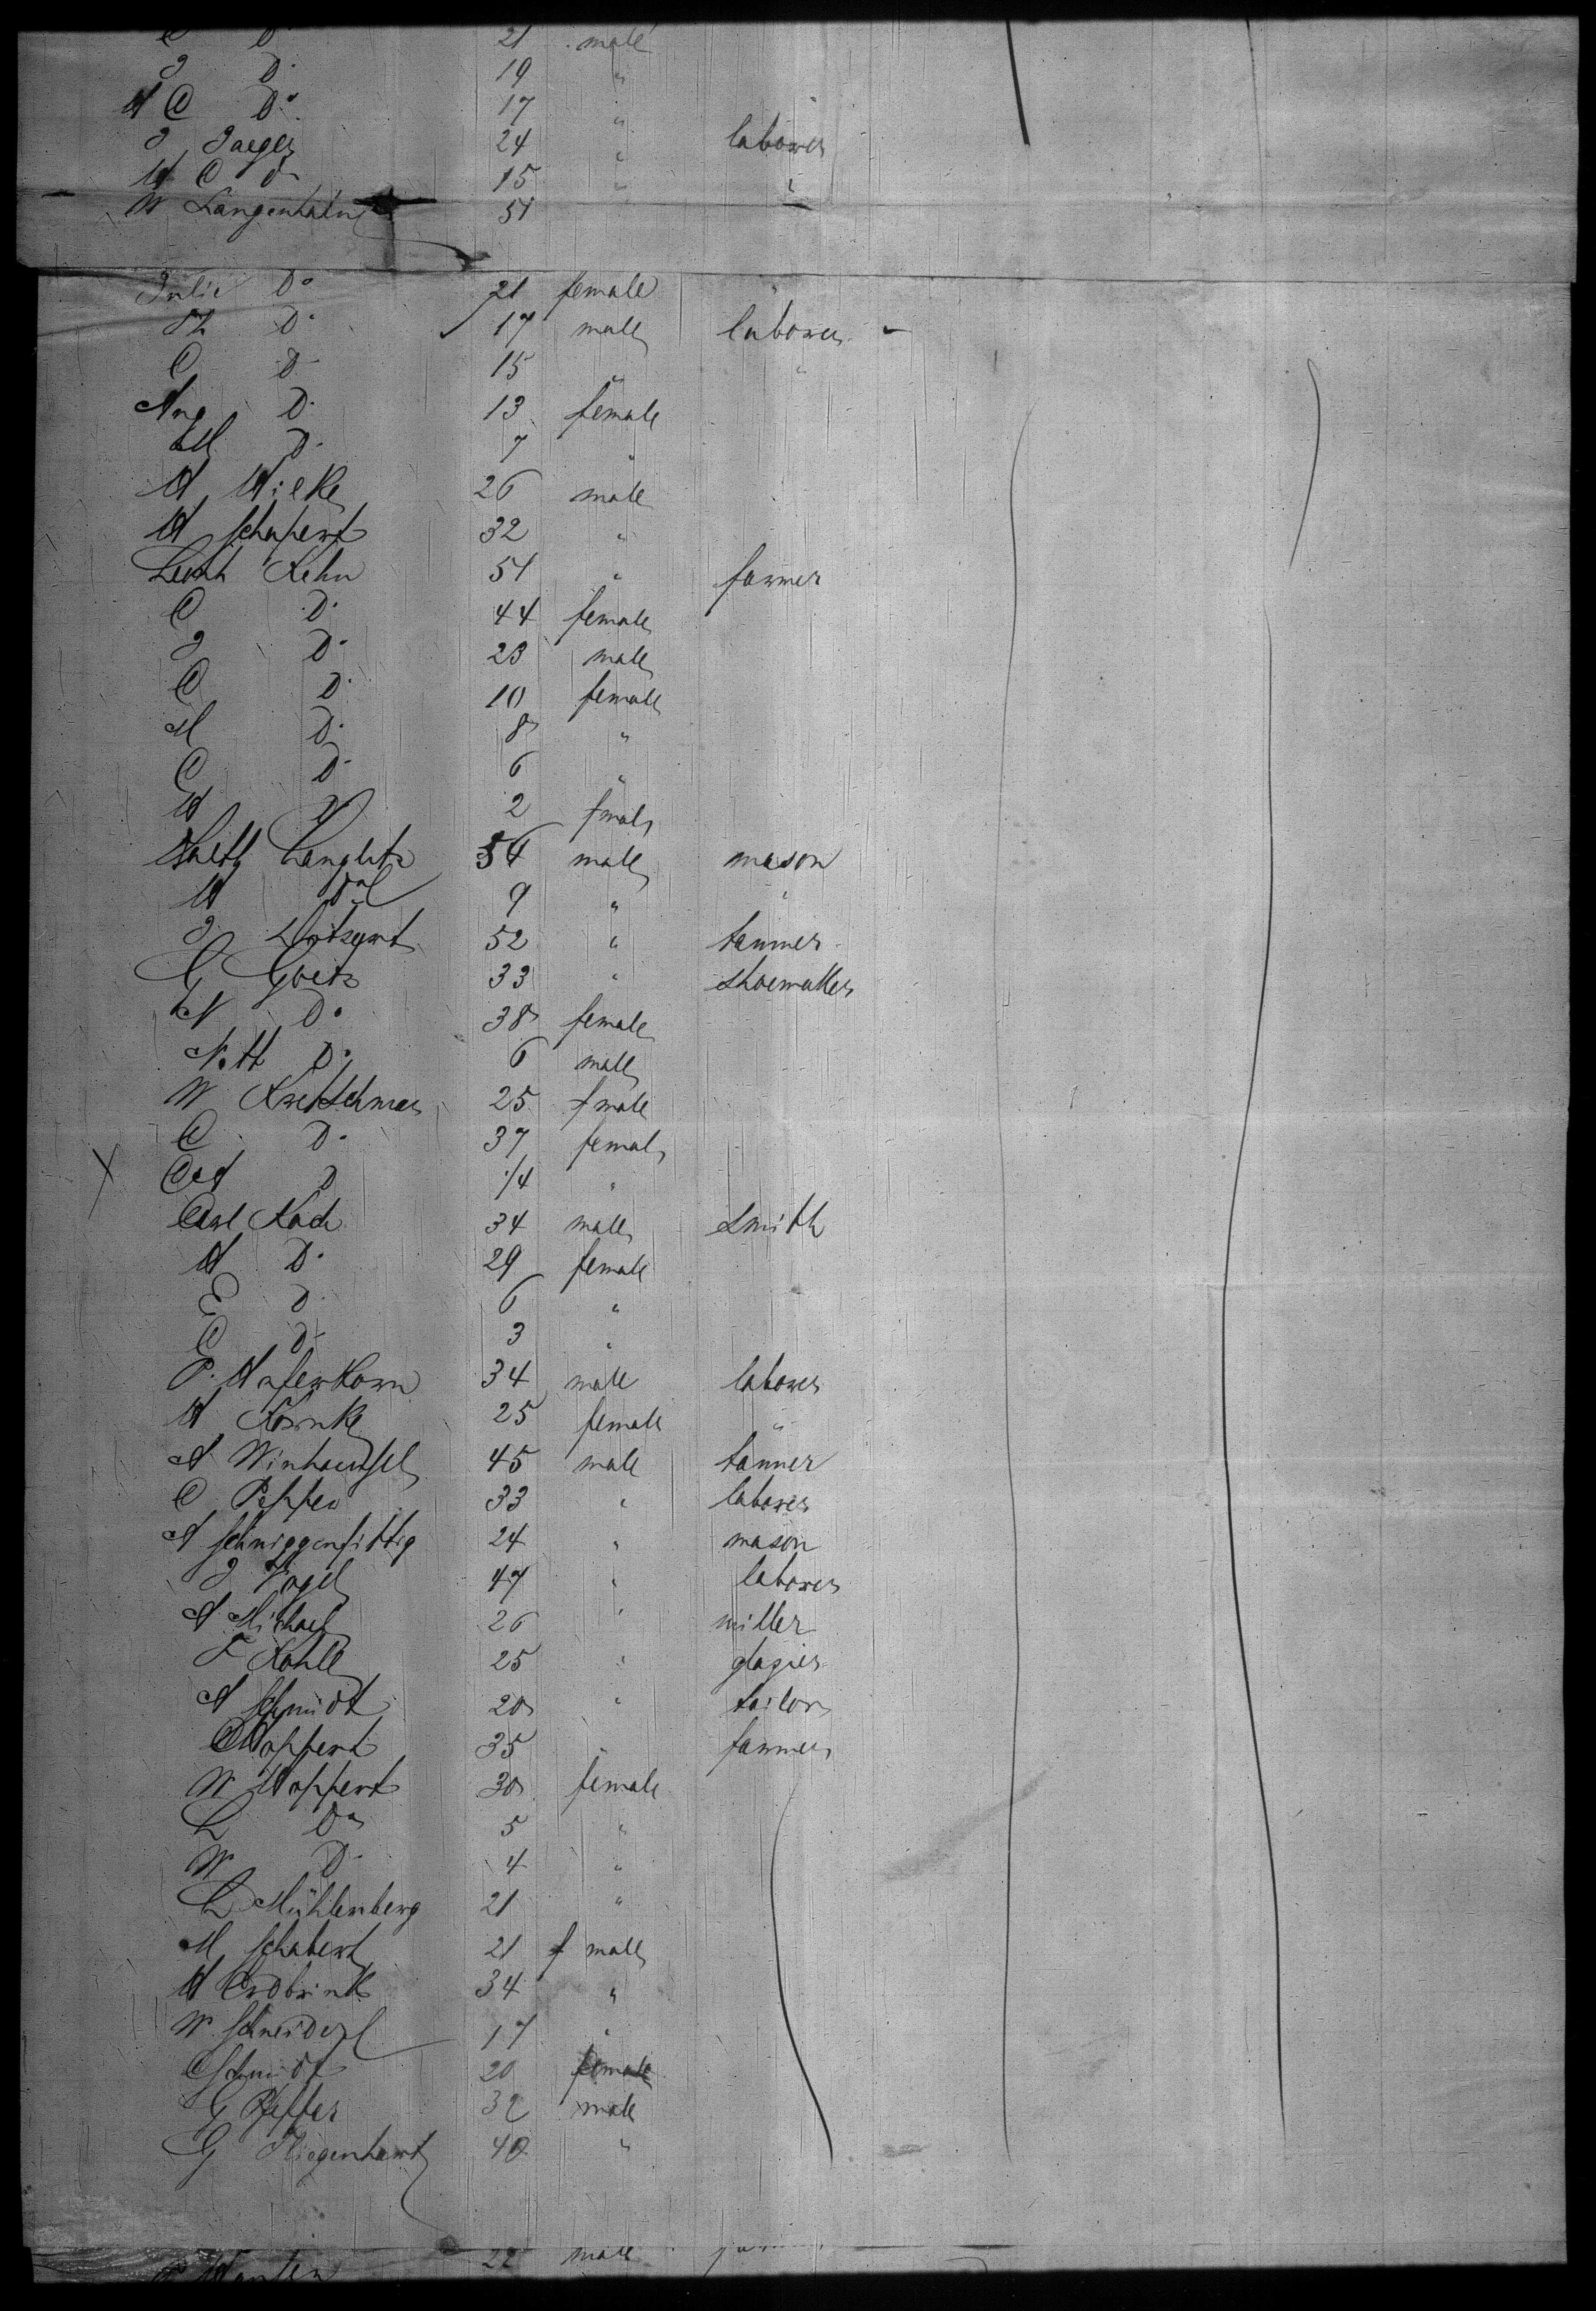 C Do 21 male
J Do 19 "
H C Do 17 "
J Jaeger 24 " laborer
H C Do 15 " "
W Langenhain 51
Julie Do 21 female "
Th Do 17 male laborer
C Do 15 " "
Ang Do 13 female
M Do 7 "
H Wilke 26 male
H Schupert 32 "
Kehn 51 " farmer
C Do 44 female
J Do 23 male
C Do 10 female
M Do 8 "
C Do 6 "
H Do 2 fmale
Langlitz 54 male mason
H Do 9 " "
J 52 " tanner
G Goetz 33 " shoemaker
N Do 38 female
Do 6 male
W Kretschmer 25 f male
C Do 37 female
D 1/4 "
Carl Koch 34 male smith
H Do 29 female
E Do 6 "
C Do 3 "
P. Haferkorn 34 male laborer
H 25 female "
A 45 male tanner
C 33 " laborer
A Schniggenfittig 24 " mason
J Vogel 47 " laborer
A Michael 26 " miller
F Kohle 25 " glazier
A Schmidt 20 " tailor
C Hoppert 35 " farmer
W Hoppert 30 female
L Do 5 "
W Do 4 "
L Mühlenberg 21 "
M Schabert 21 f male
H Erdbrink 34 "
W Schneider 17 "
C Schmidt 20 female
G Pfeffer 32 male
G 40 "
22 male